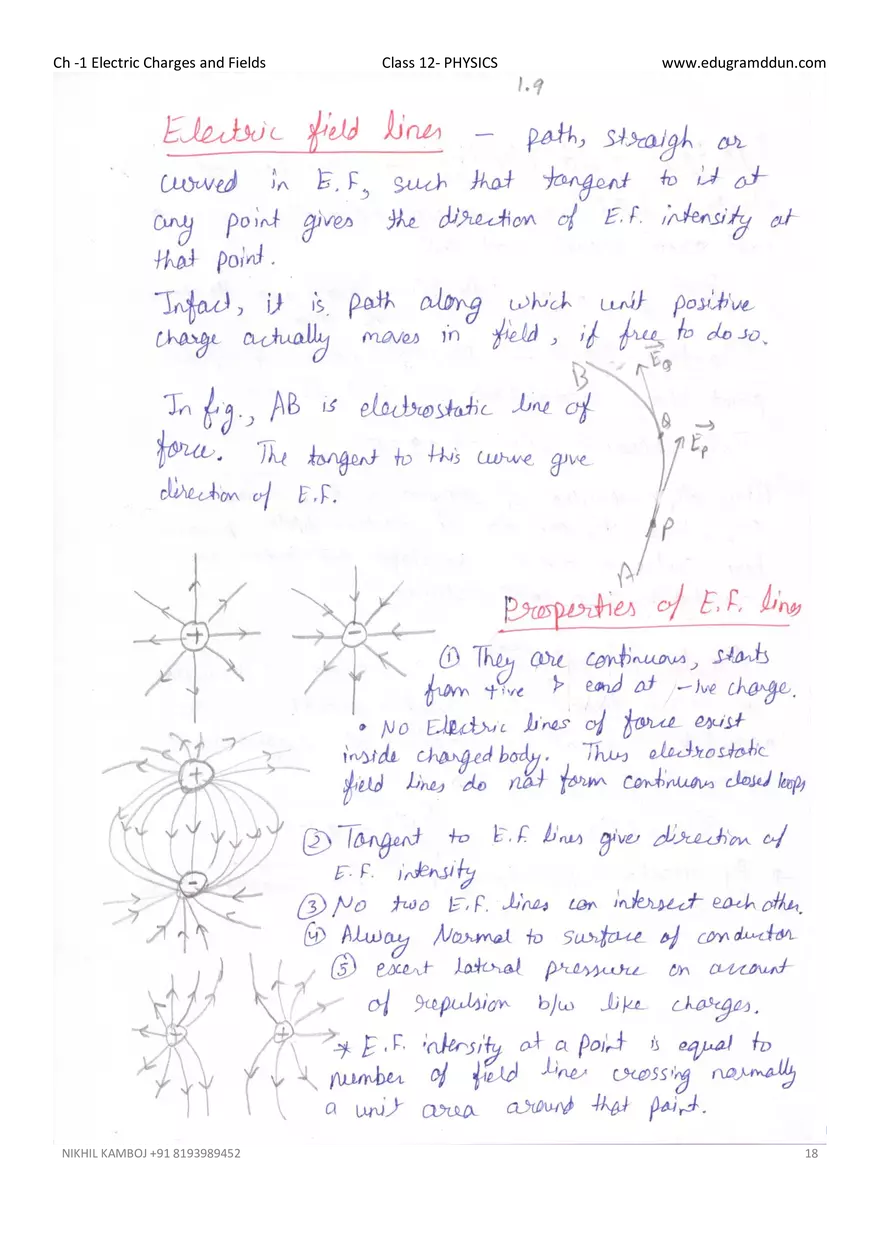 Ch -1 Electric Charges and Fields Class 12- PHYSICS www.edugramddun.com
1.9
Electric field lines - path, straigh or
curved in E.F, such that tangent to it at
any point gives the direction of E.F. intensity at
that point.
Infact, it is path along which unit positive
charge actually moves in field, if free to do so.
B E_Q
In fig., AB is electrostatic line of
Q
force. The tangent to this curve give
E_P
direction of E.F.
P
A
Properties of E.F. lines
+ -
① They are continuous, starts
from +ive & eand at -ive charge.
• No Electric lines of force exist
inside charged body. Thus electrostatic
+
field lines do not form continuous closed loops
② Tangent to E.F. lines give direction of
E.F. intensity
-
③ No two E.F. lines can intersect each other.
④ Alway Normal to surface of conductor
⑤ exert lateral pressure on account
of repulsion b/w like charges.
+ +
* E.F. intensity at a point is equal to
number of field lines crossing normally
a unit area around that point.
NIKHIL KAMBOJ +91 8193989452 18